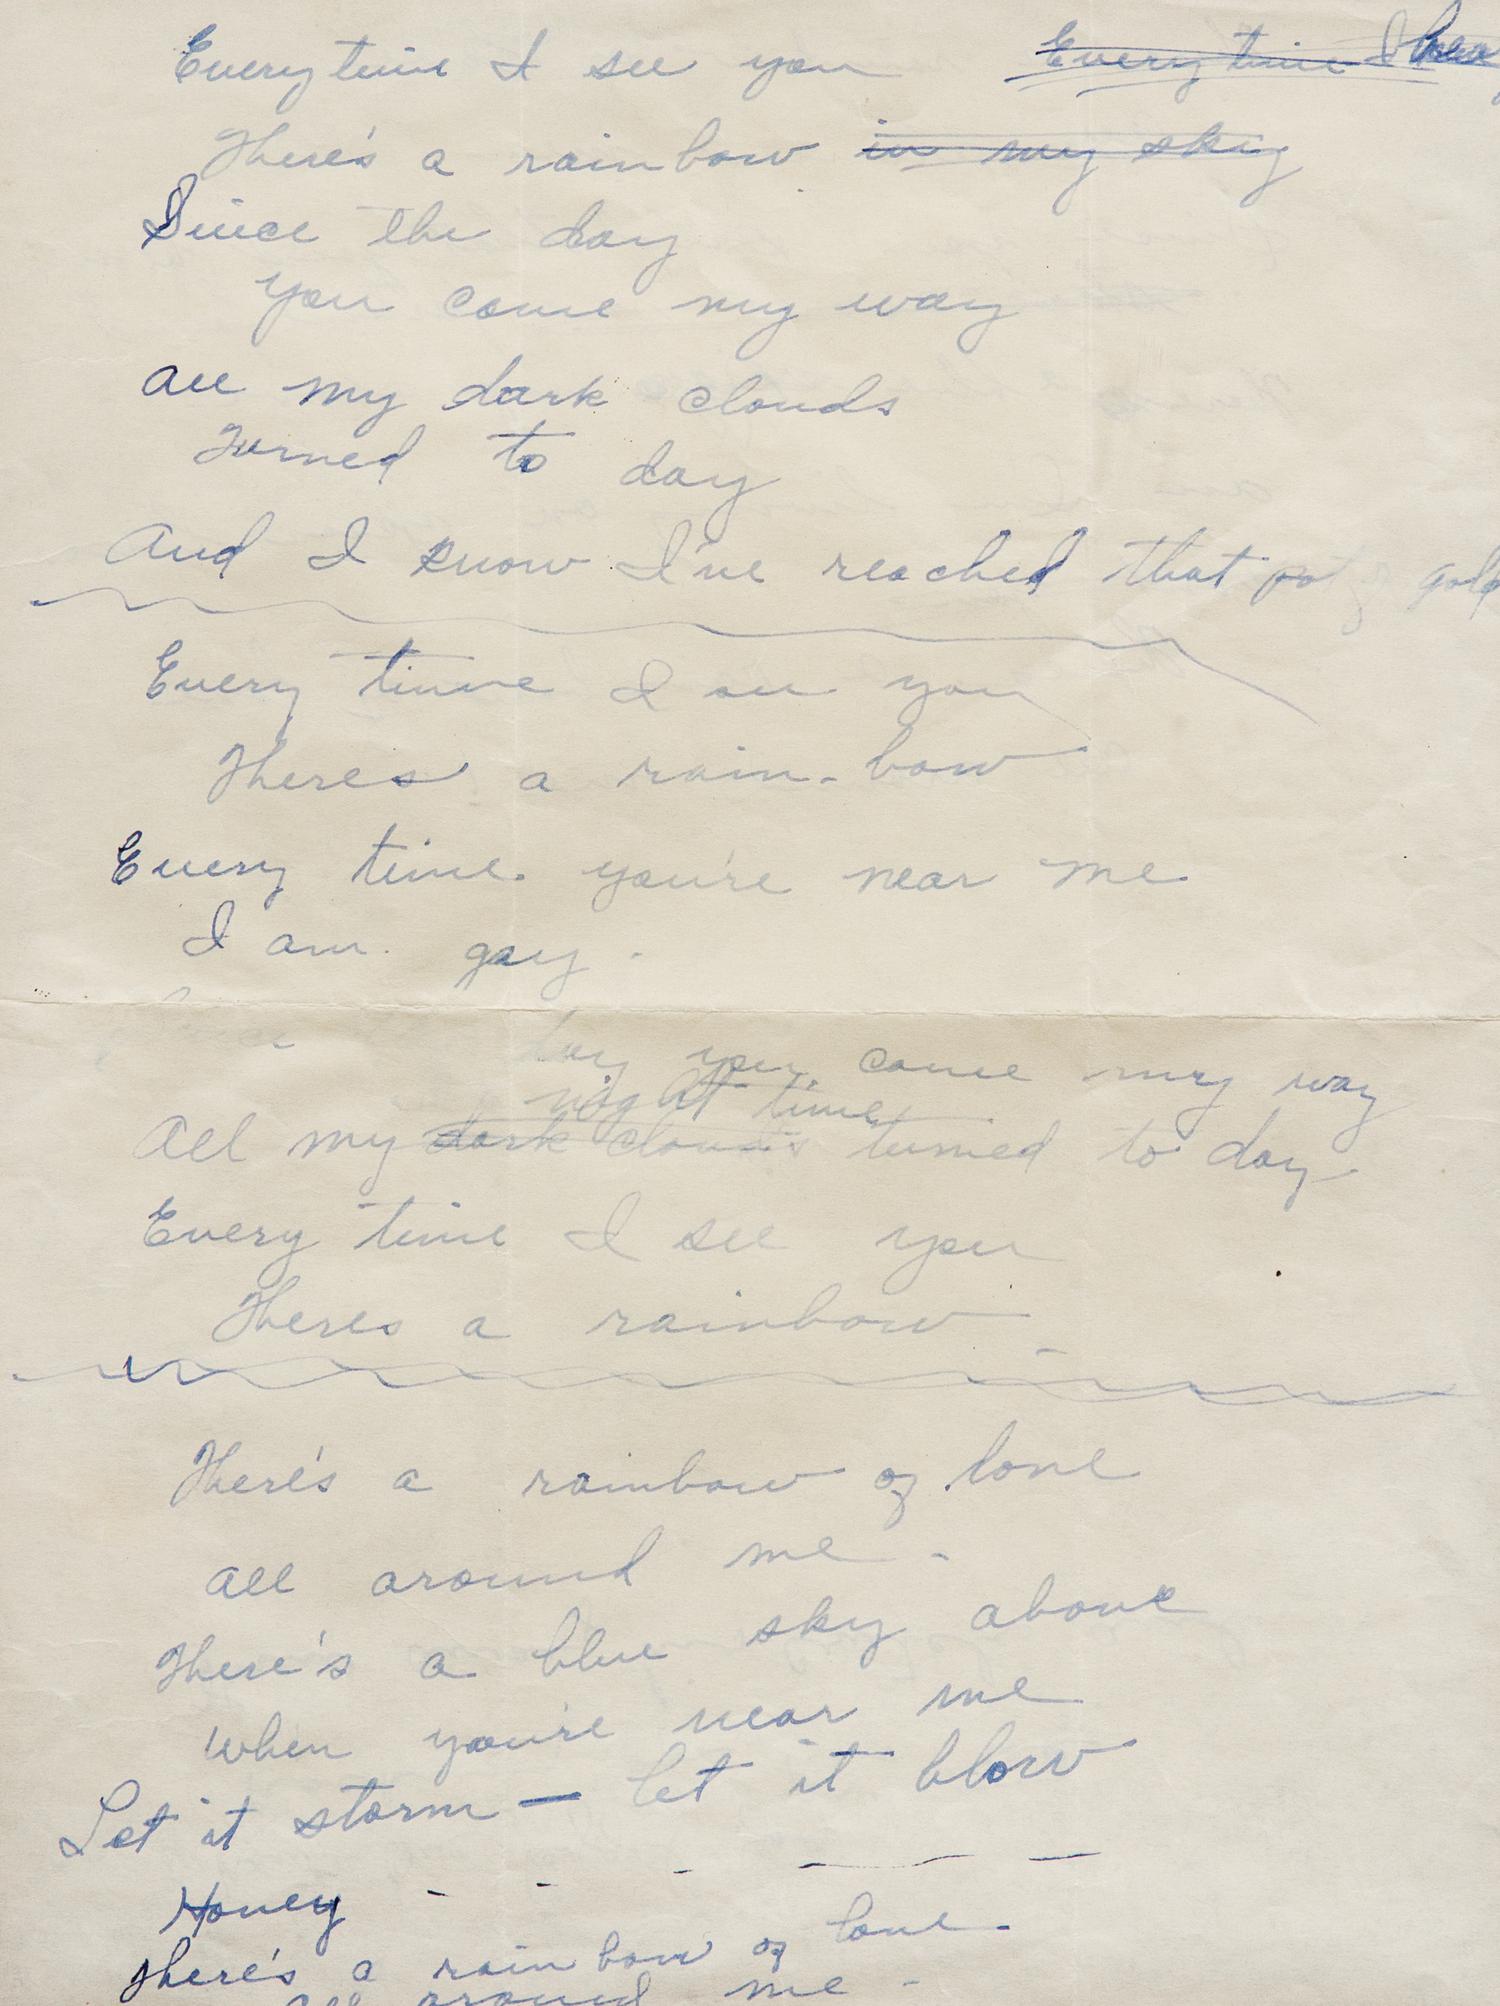 Every time I see you Every time I hear
There's a rainbow in my sky
Since the day
you came my way
all my dark clouds
Turned to day
And I know I've reached that pot of gold
Every time I see you
Theres a rain-bow
Every time you're near me
I am gay.
Since day you came my way
night time
All my dark clouds turned to day
Every time I see you
Theres a rainbow
There's a rainbow of love
all around me -
There's a blue sky above
when you're near me
Let it storm — let it blow
Honey - - - — —
There's a rainbow of love -
all around me -